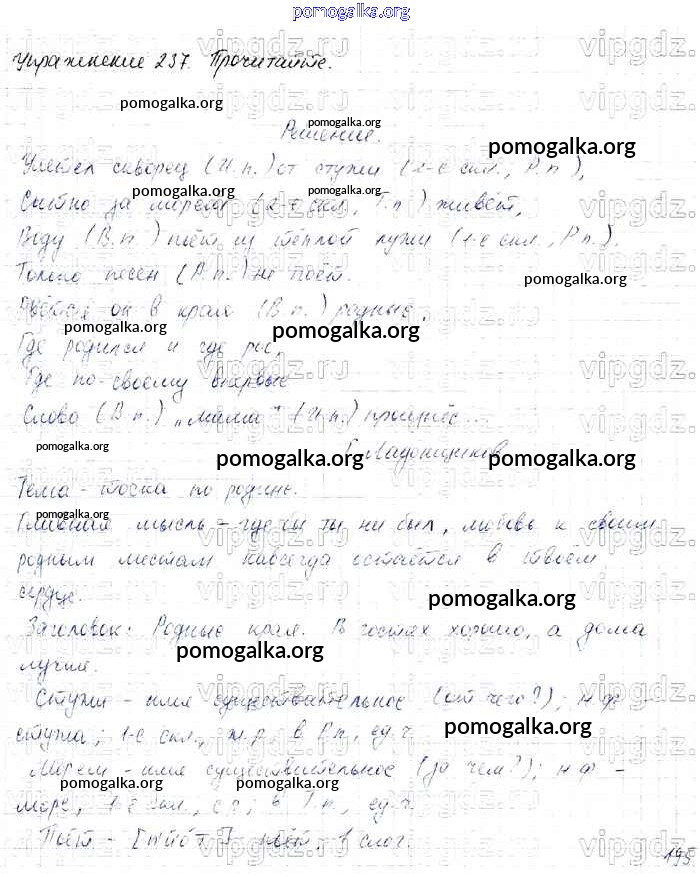 pomogalka.org
Упражнение 237. Прочитайте.
pomogalka.org
pomogalka.org
Решение.
pomogalka.org
Улетел скворец (И.п.) от стужи (2-е скл., Р.п.),
pomogalka.org pomogalka.org
Сытно за морем (2-е скл., Т.п.) живёт,
Воду (В.п.) пьёт из тёплой лужи (1-е скл., Р.п.).
Только песен (Р.п.) не поёт.
pomogalka.org
он в края (В.п.) родные,
pomogalka.org pomogalka.org
Где родился и где рос,
Где по-своему впервые
Слово (В.п.) „мама“ (И.п.) произнёс...
pomogalka.org
Г. Ладонщиков
pomogalka.org pomogalka.org
Тема - тоска по родине.
pomogalka.org
Главная мысль - где бы ты ни был, любовь к своим
родным местам навсегда остаётся в твоем
сердце.
pomogalka.org
Заголовок: Родные края. В гостях хорошо, а дома
лучше.
pomogalka.org
Стужи - имя существительное (от чего?); н.ф. -
стужа; 1-е скл., ж.р.; в Р.п., ед.ч.
pomogalka.org
Морем - имя существительное (за чем?); н.ф. -
море, скл., с.р.; в Т.п., ед.ч.
pomogalka.org pomogalka.org
Поёт - поёт, 1 слог.
195
vipgdz.ru